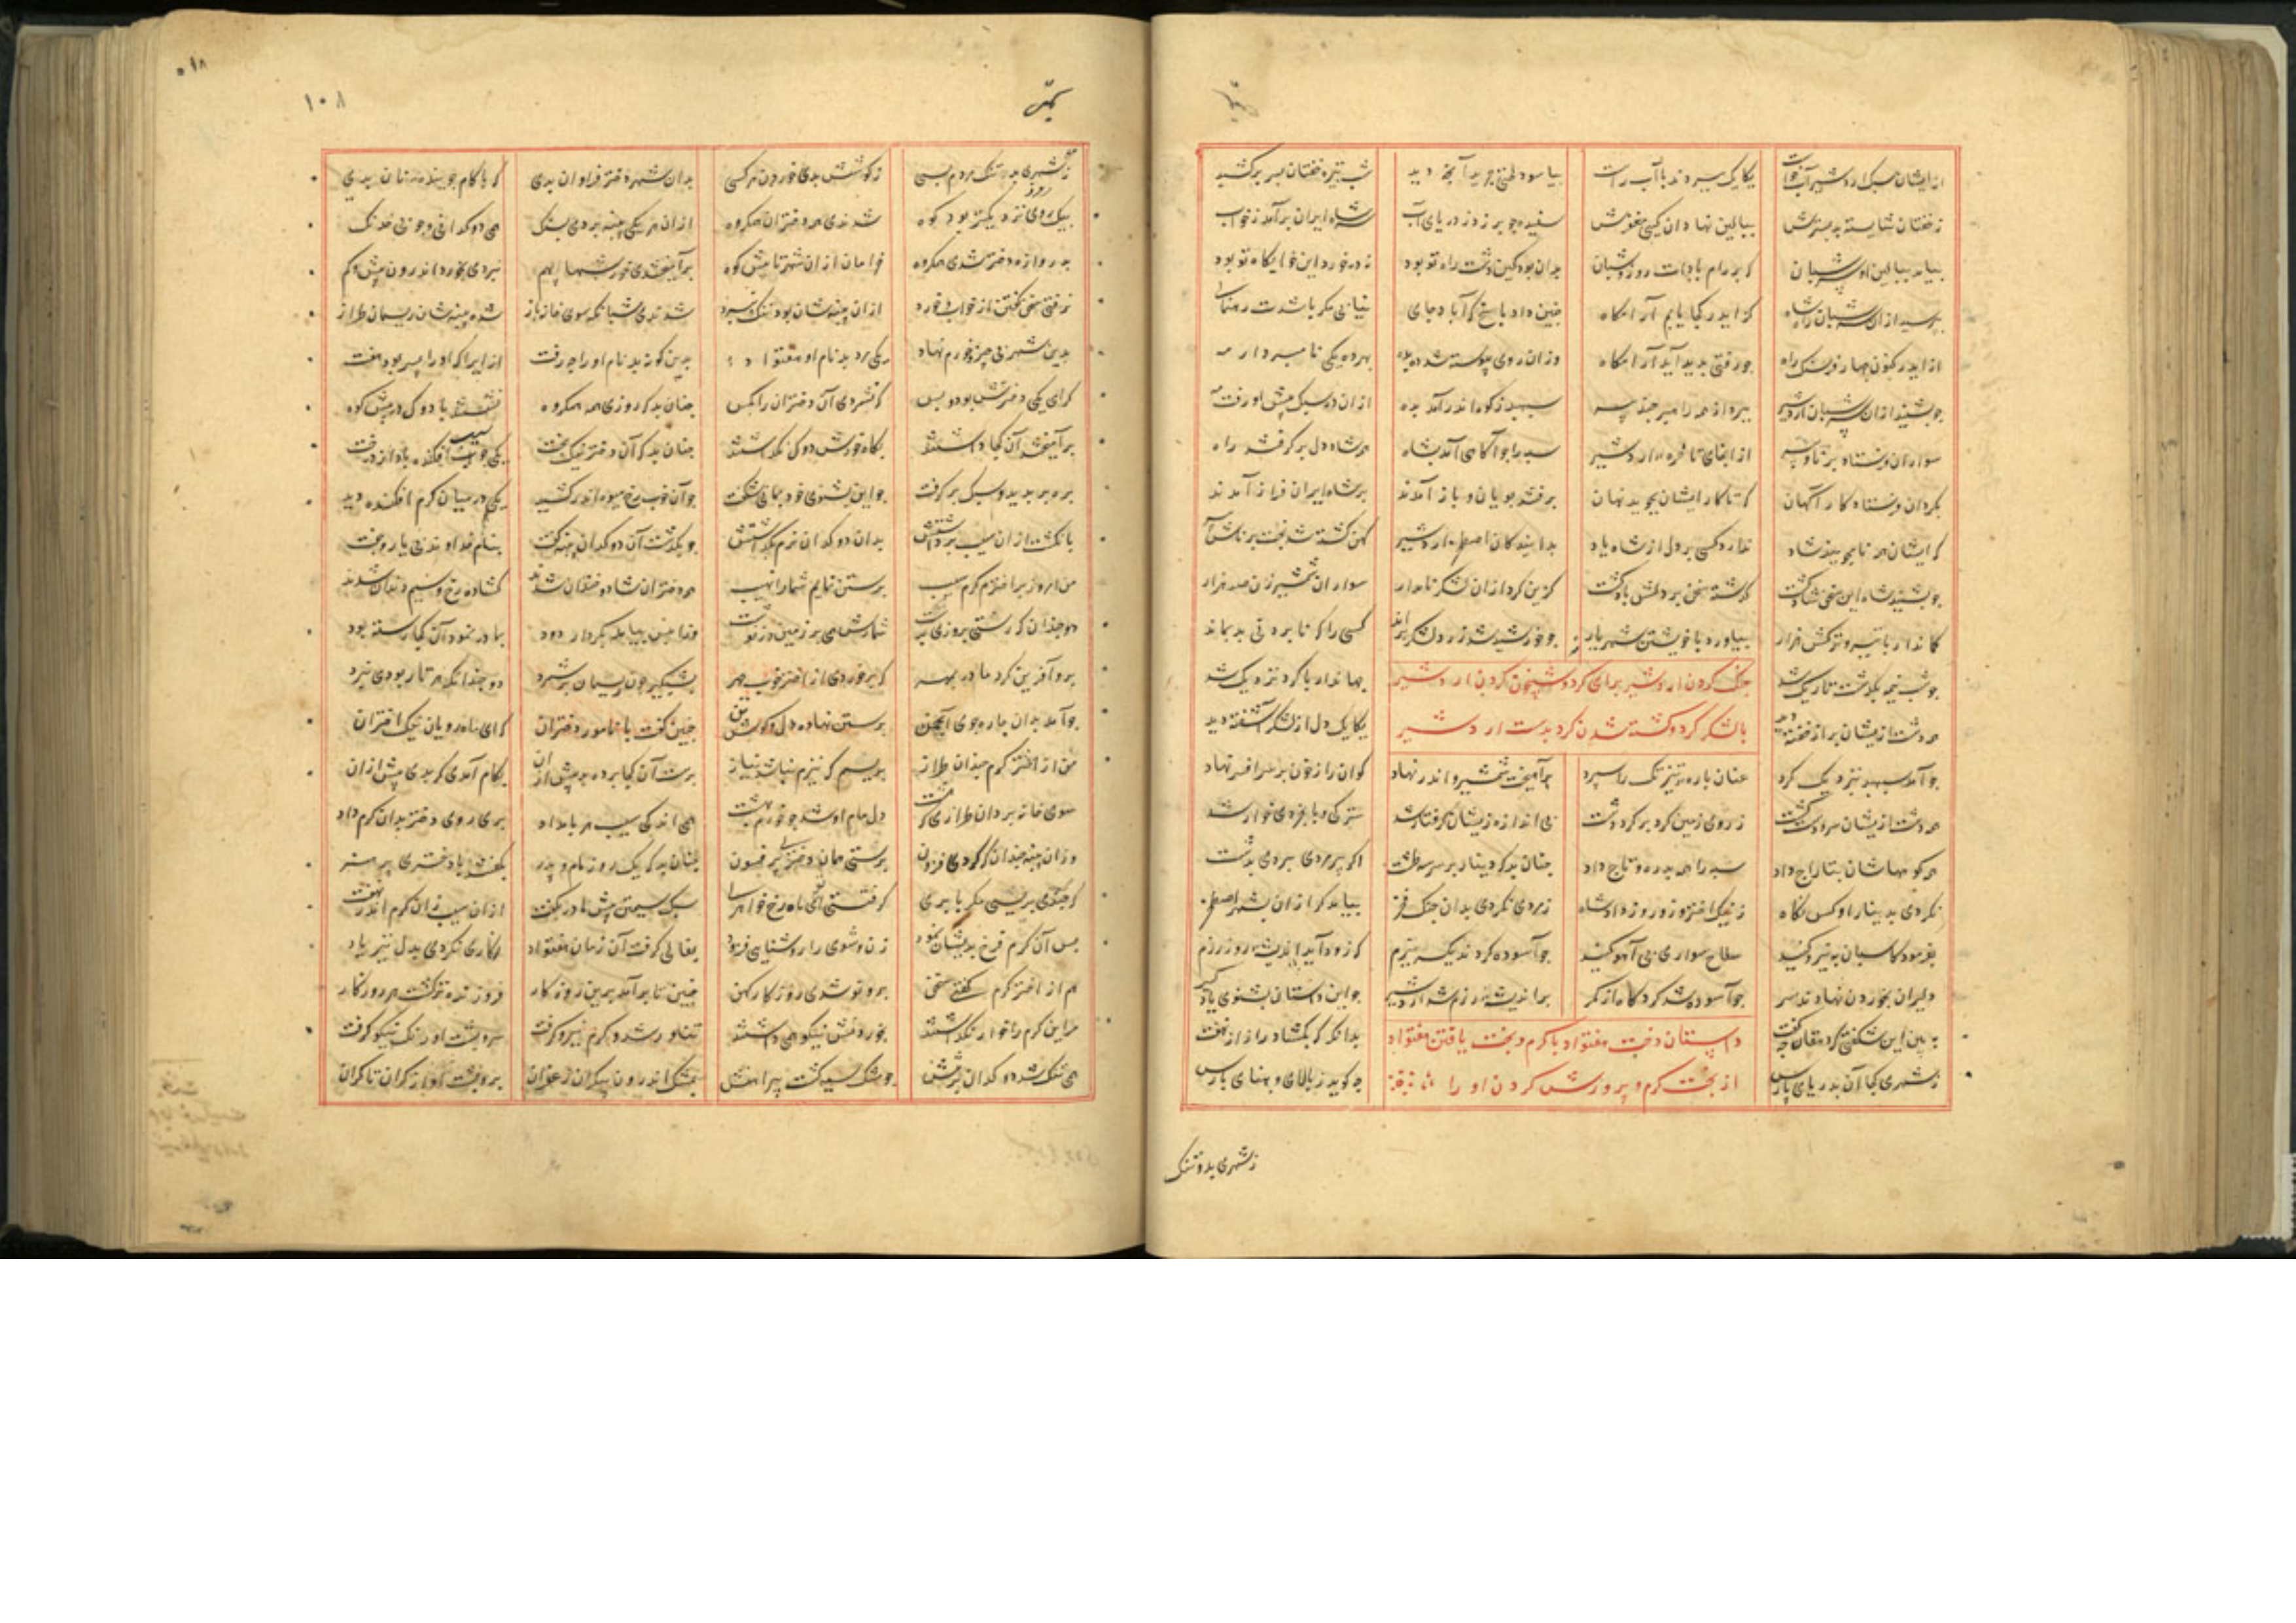 از ایشان سبک اردشیر آب خواست یکایک ببردند با آب راست بیاسود لختی چو بد آنچه دید شب تیره خفتان بسر برکشید
ز خفتان شایسته بد بسترش ببالین نهادان کیی مغفرش سفیده چو برزد ز دریای آب سر شاه ایران برآمد ز خواب
بیامد ببالین او سرشبان که بدرام بادات روز و شبان بدان بود کین دشت راه تو بود نه درخورد این خوابگاه تو بود
بپرسید از آن سرشبان راه شاه کز ایدر کجا یابم آرامگاه چنین داد پاسخ که آباد جای نیابی مگر باشدت رهنمای
از ایدر کنون چهار فرسنگ راه چو رفتی بدید آید آرامگاه وزان روی پیوسته شد ده بده بهر ده یکی نامبردار مه
چو بشنید از آن سرشبان اردشیر ببرد از رمه راهبر چند پیر سپهبد ز کوه اندر آمد بده از آن ده سبک پیش او رفت مه
سواران فرستاد برنا و پیر از انجای تا خره اردشیر سپه را چو آگاهی آمد ز شاه همه شاددل برگرفتند راه
بکردان فرستاد کارآگهان که تا کار ایشان بجوید نهان برفتند پویان و باز آمدند بر شاه ایران فراز آمدند
که ایشان همه نامجویند و شاد ندارد کسی بر دل از شاه یاد بدانند کاندر اصطخر اردشیر کهن گشته شد بخت برناش پیر
چو بشنید شاه این سخن شاد گشت گذشته سخن بر دلش باد گشت گزین کرد از آن لشکر نامدار سواران شمشیرزن صد هزار
کماندار با تیر و ترکش هزار بیاورد با خویشتن شهریار چو خورشید شد زرد لشکر براند کسی را که نابردنی بد بماند
جنگ کردن اردشیر بهای کرد و شبیخون کردن اردشیر
چو شب نیمه بگذشت و تاریک شد جهاندار با کرد نزدیک شد
با لشکر کرد و کشته شدن کرد بدست اردشیر
همه دشت از یشان پر از خفته دید یکایک دل از لشکر آشفته دید
چو آمد سپهبد نزدیک کرد عنان باره تیزتک را سپرد برآمیخت شمشیر و اندر نهاد گوان را ز خون بر سر افسر نهاد
همه دشت از یشان سر و دست گشت ز روی زمین کرد بر کرد گشت بی اندازه زیشان گرفتار شد سترگی و نابخردی خوار شد
همه کوههاشان بتاراج داد سپه را همه بدره و تاج داد چنان بد که دینار بر سر بطشت اگر پیرمردی ببردی بدشت
نکردی بدینار او کس نگاه ز نیک اختر و روز و از داد شاه ز مردی نکردی بدان جنگ فخر بیامد گرازان بشهر اصطخر
بفرمود کاسپان به نیرو کنید سلاح سواری بی آهو کنید چو آسوده گردند یکسر ببزم که زود آید اندیشه روز رزم
دلیران بخوردن نهادند سر چو آسوده شد گردگاه از کمر بر اندیشه رزم شد اردشیر چو این داستان بشنوی یاد گیر
به بین این شگفتی که دهقان چه گفت بدانگه که بگشاد راز از نهفت
داستان دخت هفتواد با کرم و بخت یافتن هفتواد
ز شهری کجا آن بدریای پارس چه گوید ز بالای و پهنای پارس
از بخت کرم و پرورش کردن او را
ز شهری بد و تنگ

۱۰۸
ز شهری بد و تنگ مردم بسی ز کوشش بدی خوردن هر کسی بدان شهر دختر فراوان بدی که با کام جوینده نان بدی
بیک روی نزدیکتر بود کوه شدندی همه دختران همگروه از آن هر یکی پنبه بردی بسنگ همی دوکدانی و چوبی خدنگ
بدروازه دختر شدی همگروه خرامان از آن شهر تا پیش کوه برآمیختندی خورشها بهم نبودی بخورد اندرون بیش و کم
نرفتی سخن گفتن از خواب و خورد از آن پنبه شان بود ننگ و نبرد شدندی شبانگه سوی خانه باز شده پنبه شان ریسمان طراز
بدین شهر بی چیز خرم نهاد یکی مرد بد نام او هفتواد برین گونه بر نام او راه رفت از ایرا که او را پسر بود هفت
گرامی یکی دخترش بود و بس که نشمردی آن دختران را بکس چنان بد که روزی همه همگروه نشستند با دوک در پیش کوه
برآمیختند آن کجا داشتند بگاه خورش دوک بگذاشتند چنان بد که آن دختر نیکبخت یکی خوب سیب افکنده باد از درخت
به ره بر بدید و سبک برگرفت چو این بشنوی خود بمانی شگفت چو آن خوب رخ میوه اندر کشید یکی در میان کرم افکنده دید
بانگشت از آن سیب برداشتش بدان دوکدان نرم بگذاشتش چو بگذشت آن دوکدان پنبه گفت بنام خداوند بی یار و جفت
من امروز بر اختر کرم سیب برستن نمایم شما را نهیب همه دختران شاد و خندان شدند گشاده رخ و سیم دندان شدند
دو چندان که رستی بروزی برشت شمارش همی بر زمین بر نوشت وز آنجا بیامد بکردار دود بمادر نمود آن کجا رشته بود
برو آفرین کرد مادر بمهر که برخوردی از اختر خوب چهر بشبگیر چون ریسمان برشمرد دو چندانکه هر بار بودی ببرد
چو آمد بدان چاره جوی انجمن برستن نهاده دل و کوش و تن چنین گفت با نامور دختران که ای ماهرویان نیک اختران
من از اختر کرم چندان طراز بریسم که نیزم نباشد نیاز برشت آن کجا برده بد پیش از آن بکام آمدی گر بدی بیش از آن
سوی خانه برد آن طرازی که رشت دل مام او شد چو خرم بهشت همی اندکی سیب هر بامداد پری روی دختر بدان کرم داد
وز آن پنبه چندان که کردی فزون برشتی همان دختر پرفسون چنان بد که یک روز مام و پدر بگفتند با دختری پر هنر
که چندی بریسی مگر با پری گرفتستی ای ماه رخ خواهری سبک سیمتن پیش مادر بگفت از آن سیب وز آن کرم اندر نهفت
پس آن کرم فرخ بدیشان نمود زن و شوی را روشنایی فزود بفالی گرفت آن زمان هفتواد ز کاری نکردی بدل نیز یاد
هم از اختر کرم گفتی سخن برو تو شدی روزگار کهن چنین تا برآمد برین روزگار فروزنده تر گشت هر روز کار
مر این کرم را خوار نگذاشتند بخوردنش نیکو همی داشتند تناور شد و کرم نیرو گرفت سر و پشت او رنگ نیکو گرفت
همی تنگ شد دوکدان بر تنش چو مشک سیه گشت پیراهنش بمشک اندرون پیکران زعفران برو پشت او از کران تا کران